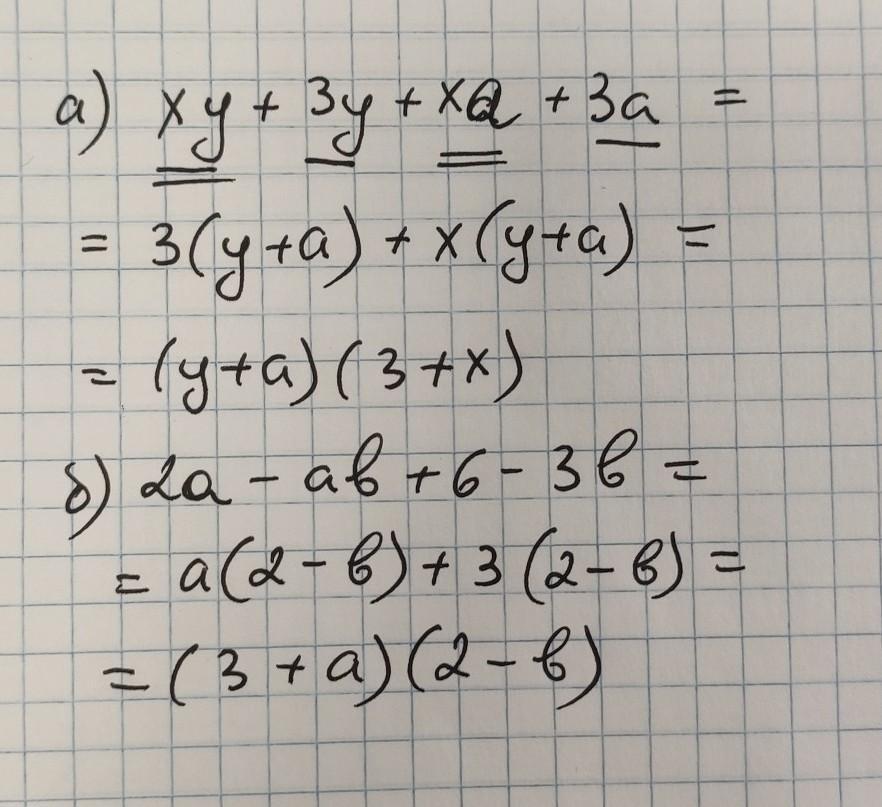 а) xy + 3y + xa + 3a =
= 3(y+a) + x(y+a) =
= (y+a)(3+x)
б) 2a - ab + 6 - 3b =
= a(2-b) + 3(2-b) =
= (3+a)(2-b)